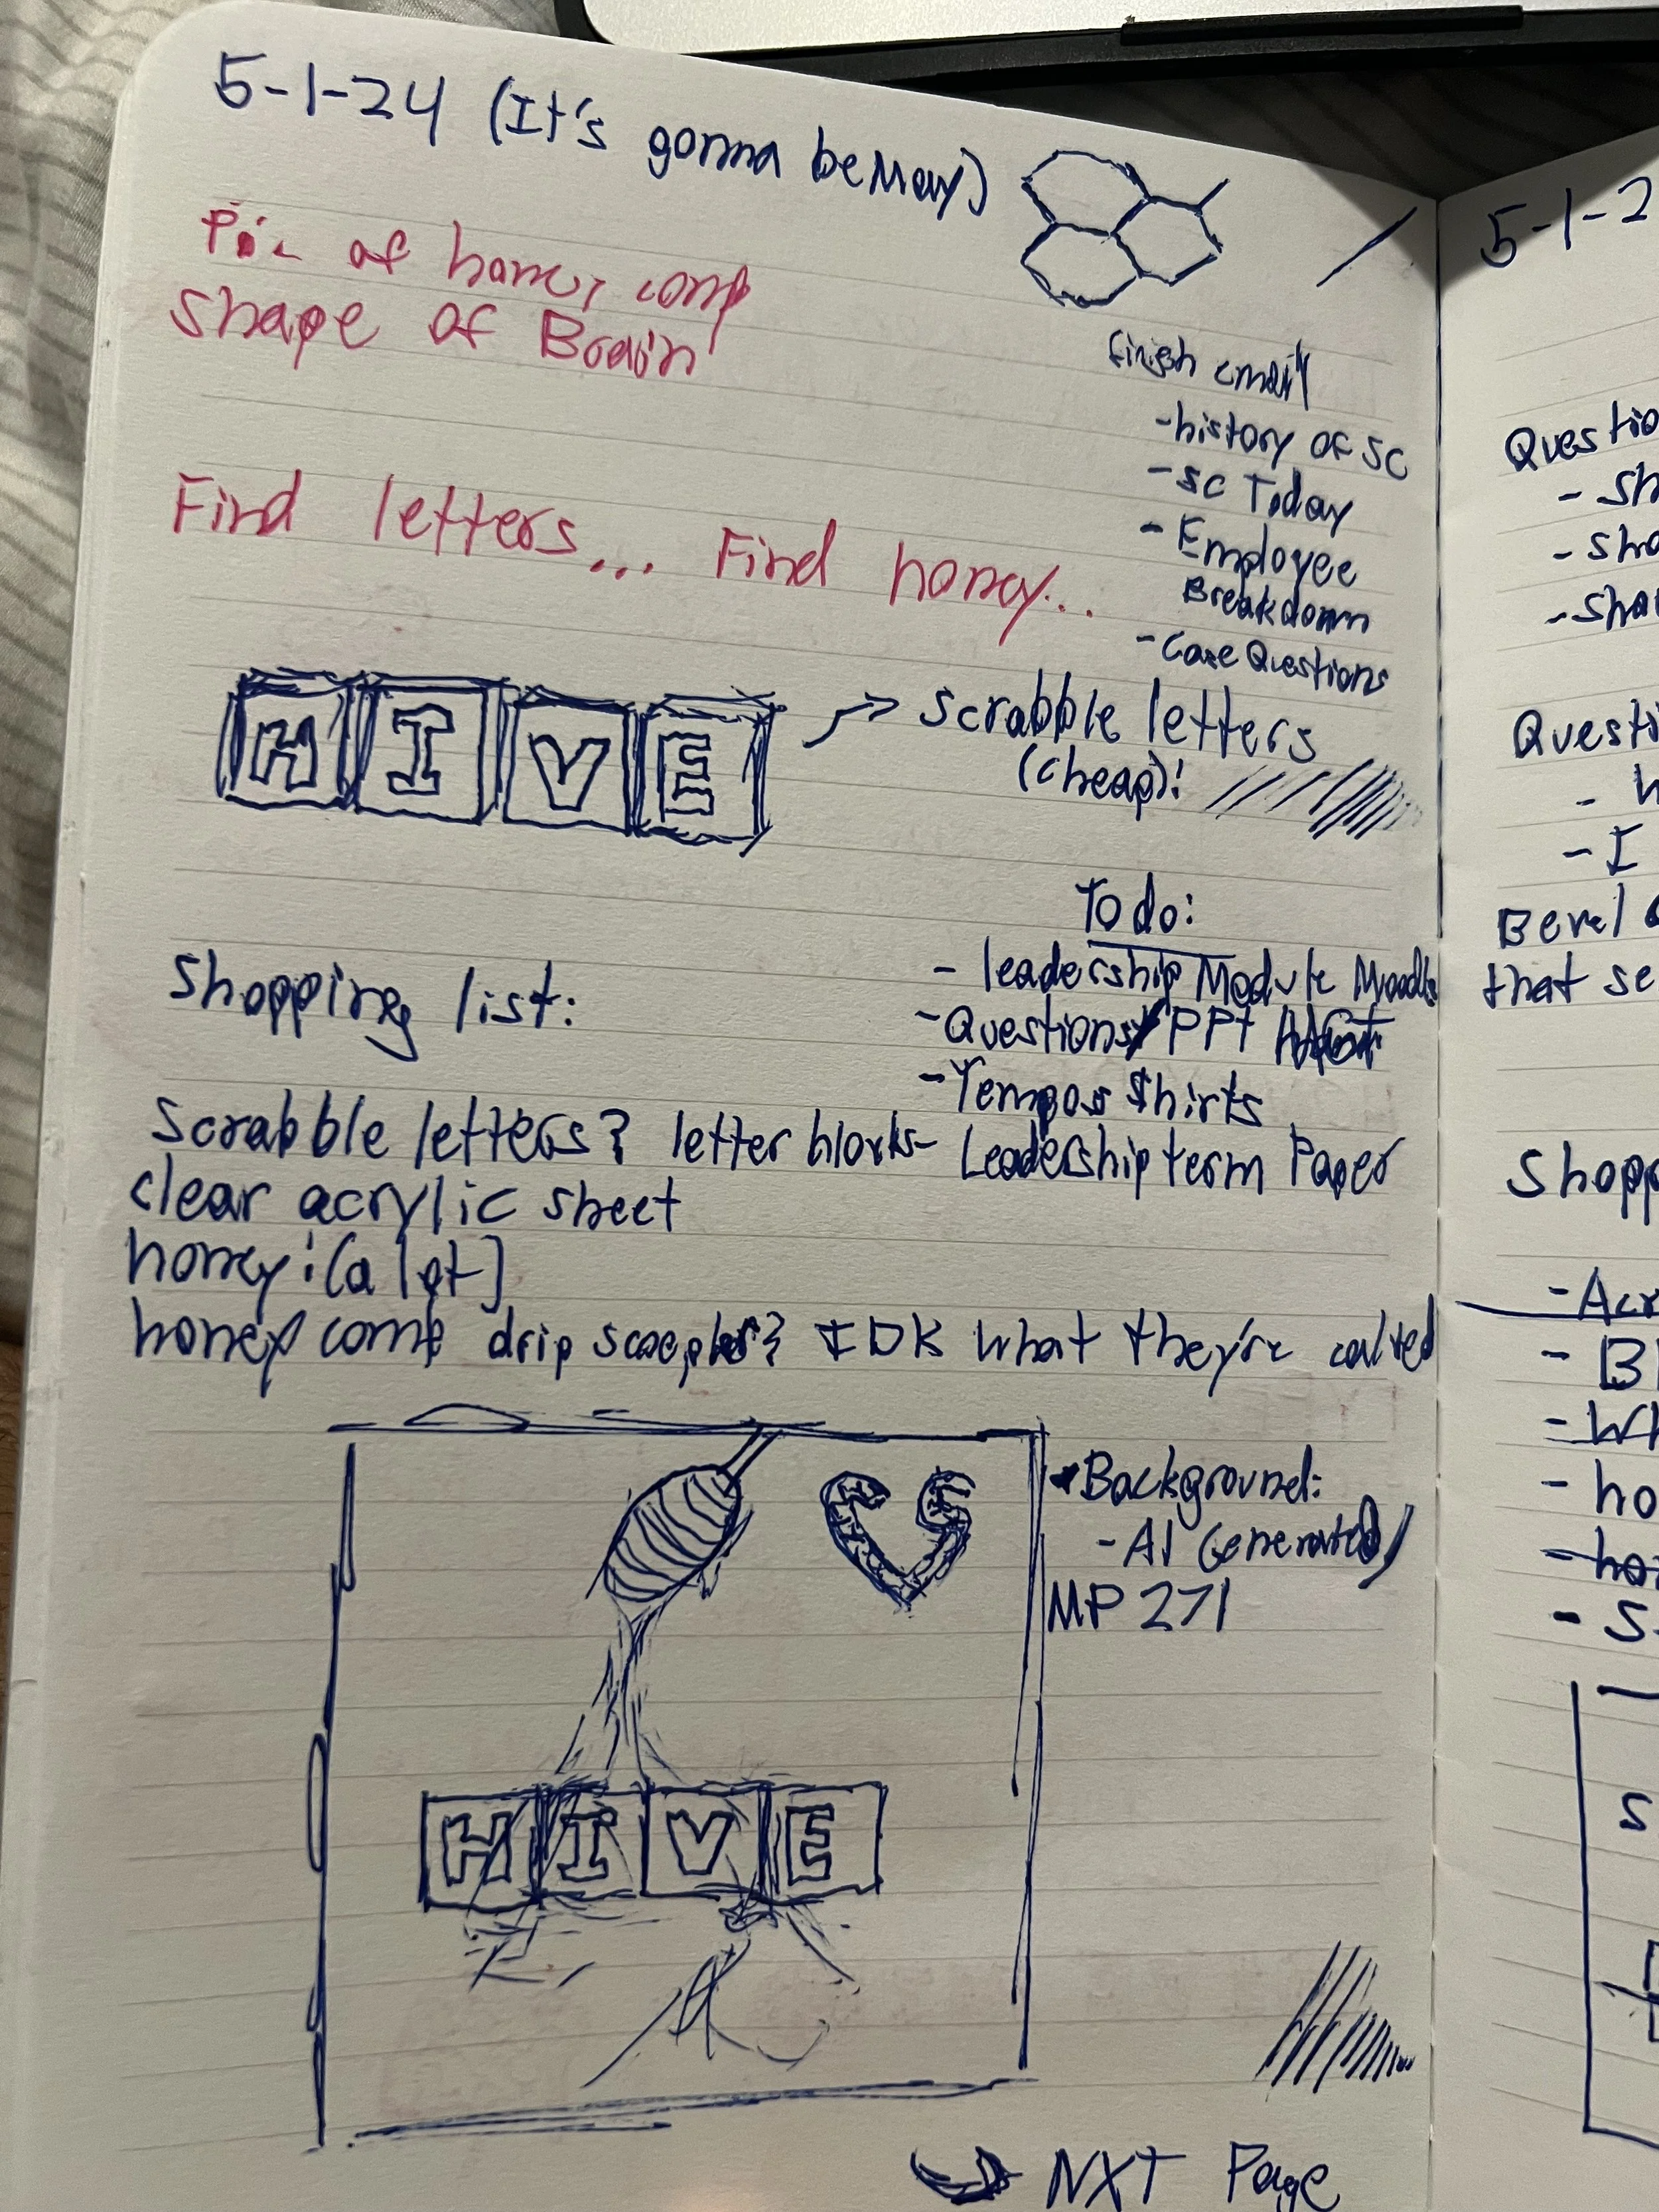 5-1-24 (It's gonna be May)
Pic of honey comb
shape of Brain
finish email
-history of SC
-SC Today
-Employee
Breakdown
-Case Questions
Find letters... Find honey...
HIVE
scrabble letters
(cheap)!
To do:
-leadership Module Moodle
-Questions/PPT
-Tempos Shirts
- Leadership term Paper
Shopping list:
scrabble letters? letter blocks
clear acrylic sheet
honey! (a lot)
honey comb drip IDK what they're called
Background:
-AI Generated
MP 271
HIVE
NXT Page
5-1-2
Questio
- Sh
- Sha
-Sha
Questi
- I
Bevel
that se
Shopp
-Acr
- Bl
- Wh
- ho
- ho
- S
S